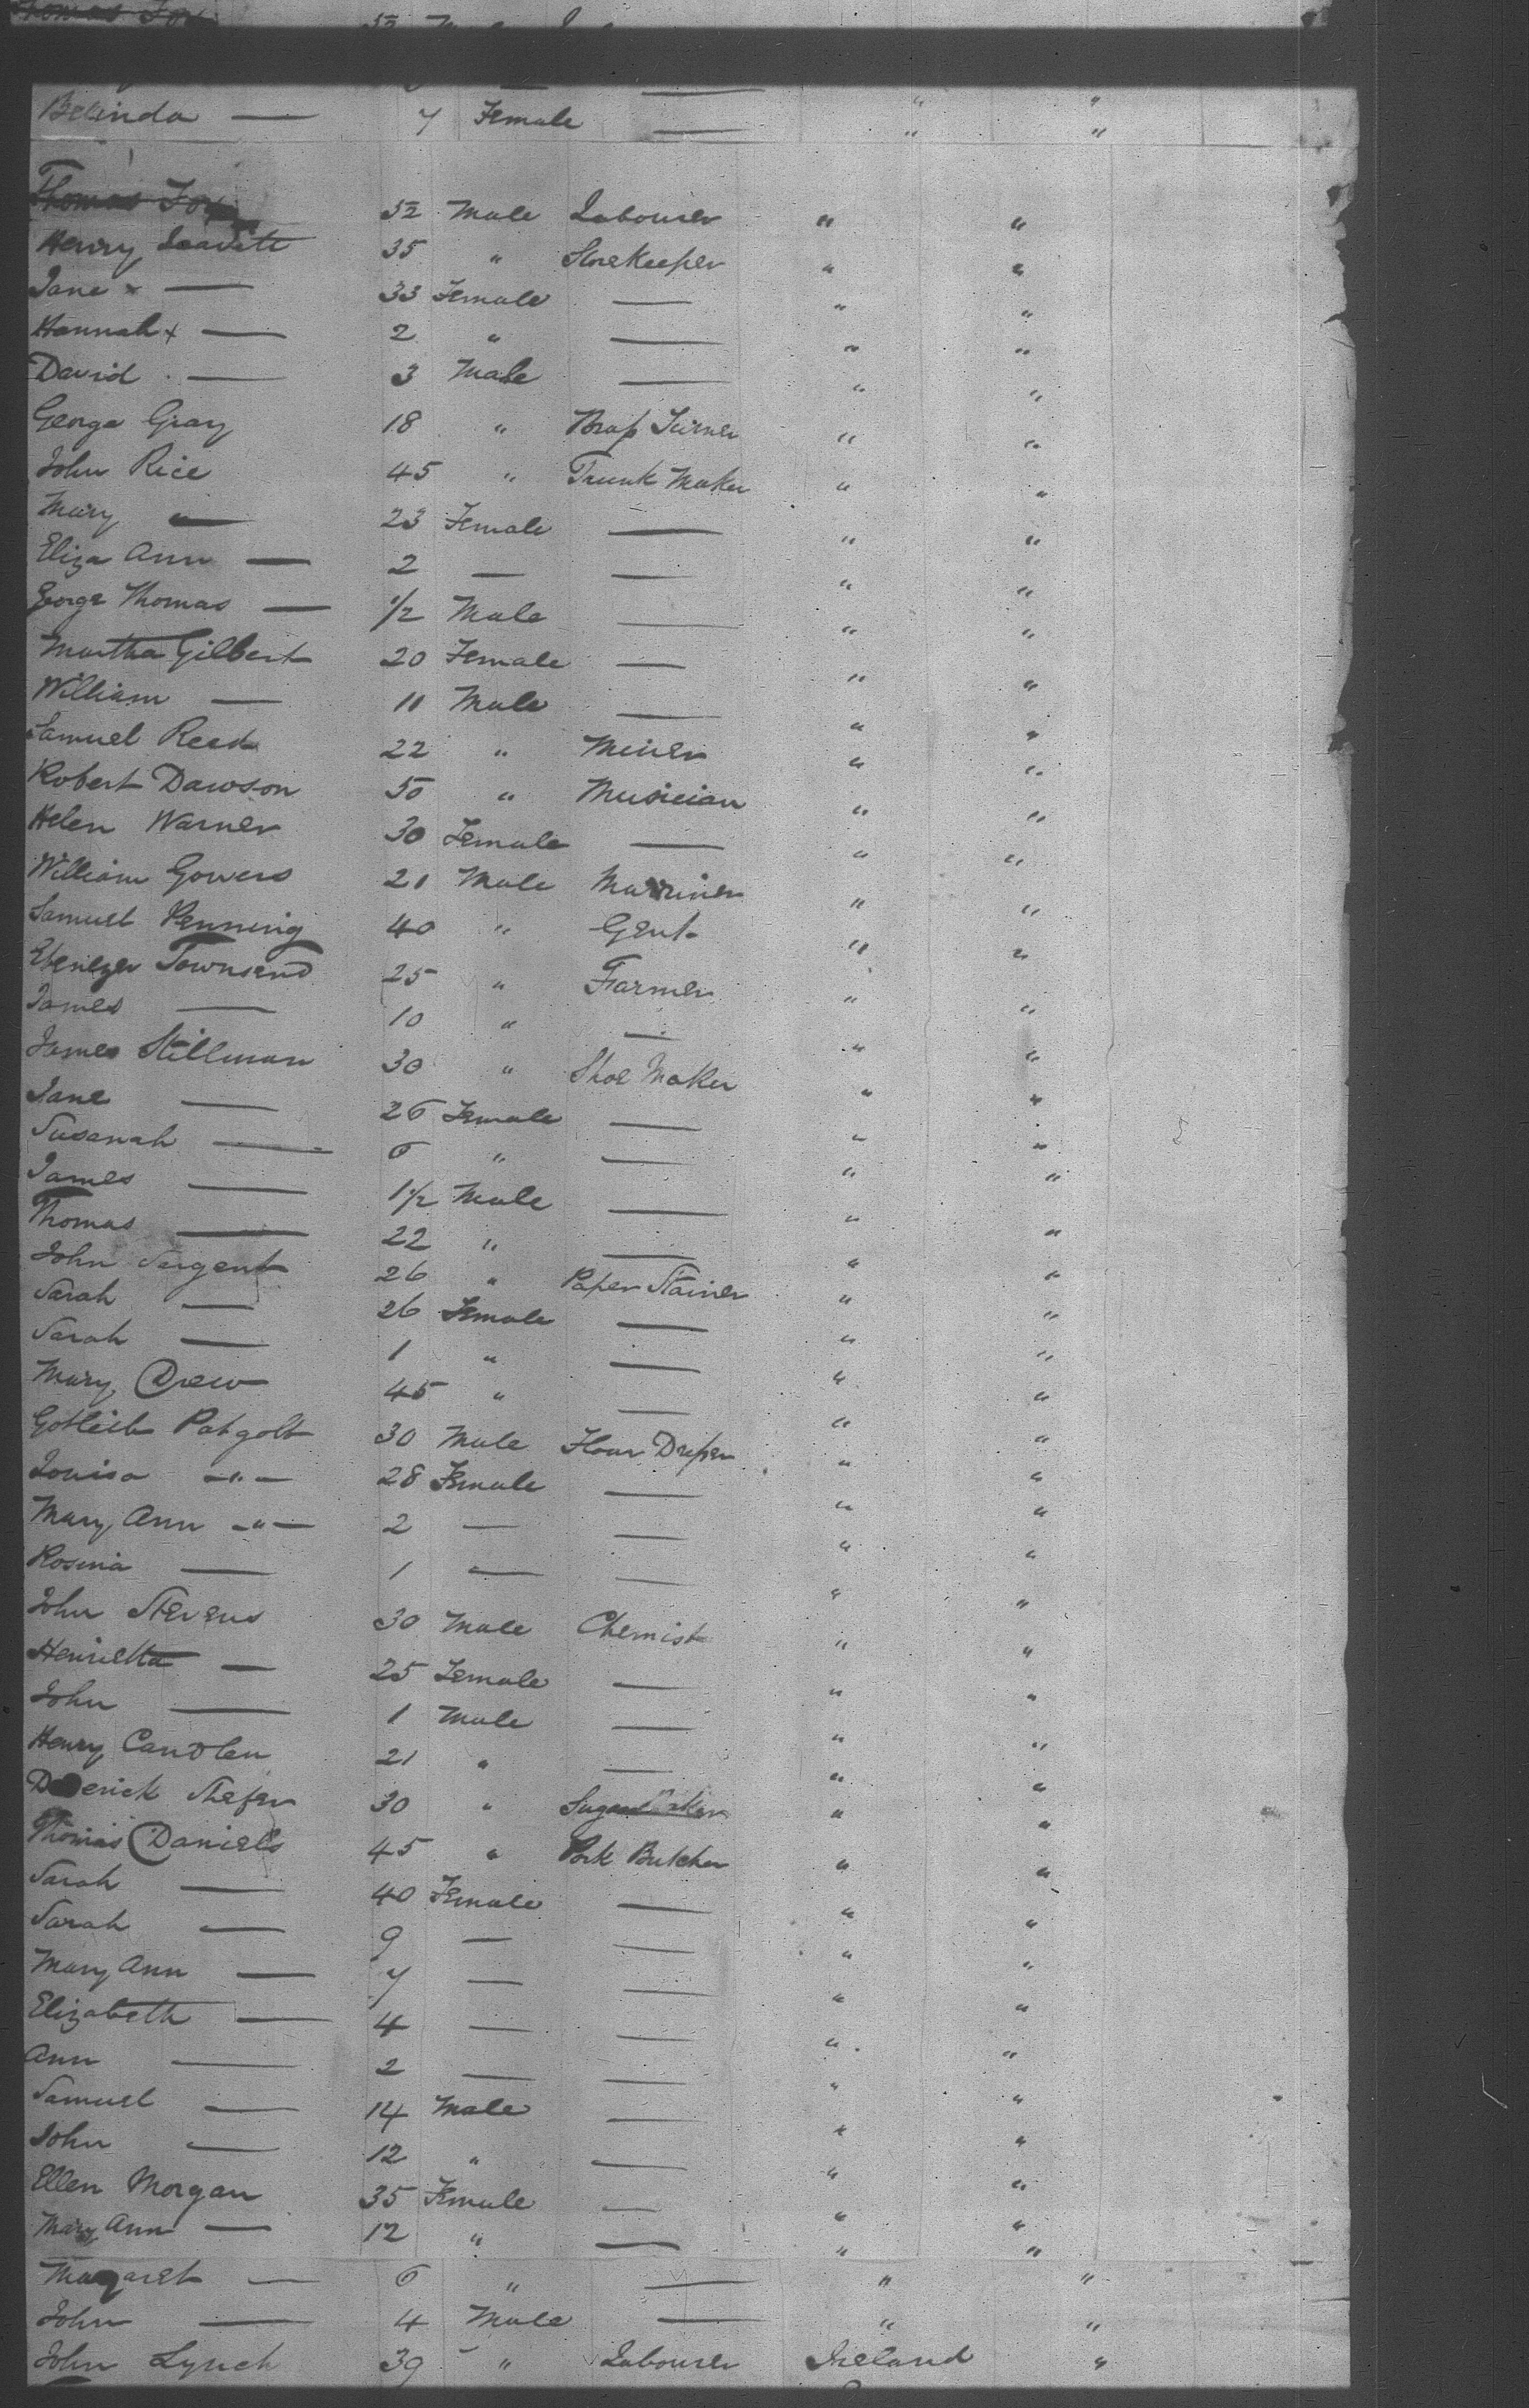 Thomas Fox 52
Belinda — 7 Female — " "
Thomas Fox 52 Male Labourer " "
Henry Leavitt 35 " Storekeeper " "
Jane x — 33 Female — " "
Hannah x — 2 " — " "
David — 3 Male — " "
George Gray 18 " Brass Turner " "
John Rice 45 " Trunk Maker " "
Mary " — 23 Female — " "
Eliza Ann — 2 — — " "
George Thomas — 1/2 Male — " "
Martha Gilbert 20 Female — " "
William — 11 Male — " "
Samuel Reed 22 " Miner " "
Robert Dawson 50 " Musician " "
Helen Warner 30 Female — " "
William Gowers 21 Male Marriner " "
Samuel Penning 40 " Gent " "
Ebenezer Townsend 25 " Farmer " "
James — 10 " — " "
James Stillman 30 " Shoe Maker " "
Jane — 26 Female — " "
Susanah — 6 " — " "
James — 1 1/2 Male — " "
Thomas — 22 " — " "
John Sergent 26 " Paper Stainer " "
Sarah — 26 Female — " "
Sarah — 1 " — " "
Mary Drew 45 " — " "
Gotlieb Patgolt 30 Male " "
Louisa — " — 28 Female — " "
Mary Ann — " — 2 — — " "
Rosina — 1 — — " "
John Stevens 30 Male Chemist " "
Henrietta — 25 Female — " "
John — 1 Male — " "
Henry Candlen 21 " — " "
Stefer 30 " Sugar Baker " "
Thomas Daniels 45 " Pork Butcher " "
Sarah — 40 Female — " "
Sarah — 9 — — " "
Mary Ann — 7 — — " "
Elizabeth — 4 — — " "
Ann — 2 — — " "
Samuel — 14 Male — " "
John — 12 " — " "
Ellen Morgan 35 Female — " "
Mary Ann — 12 " — " "
Margaret — 6 " — " "
John — 4 Male — " "
John Lynch 39 " Labourer Ireland "